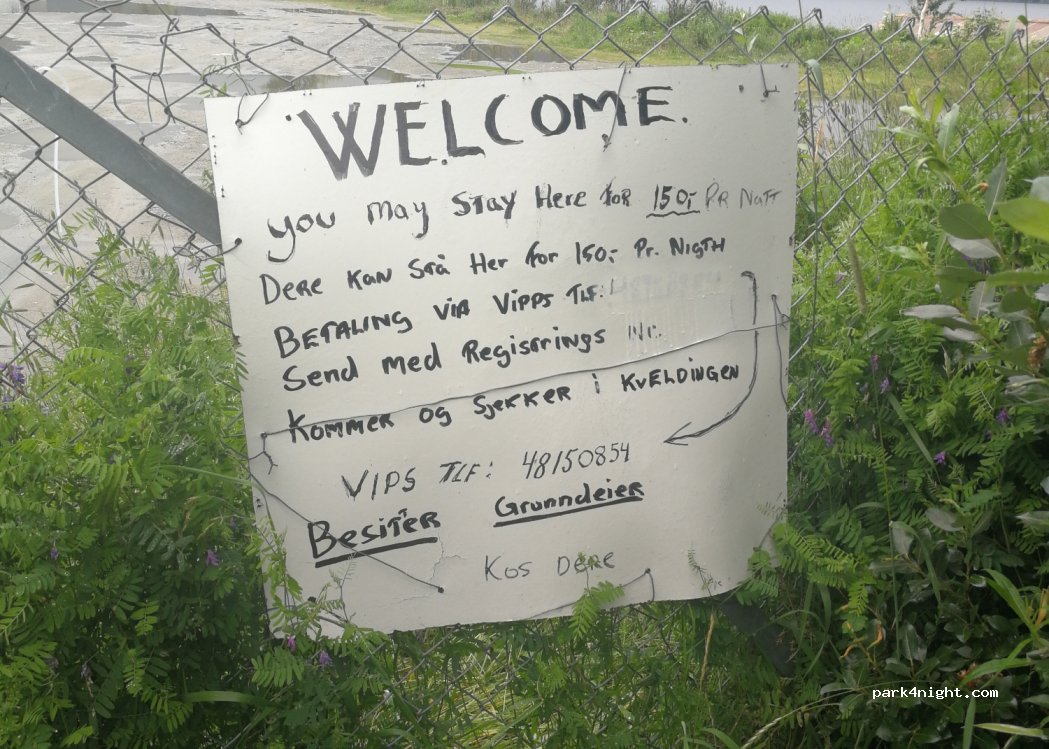 WELCOME.
you may stay Here for 150,- PR Natt
Dere kan Stå Her for 150,- Pr. Nigth
Betaling via Vipps Tlf:
Send med Registrings Nr.
Kommer og Sjekker i kveldingen
VIPS TLF: 48150854
Besitter Grunndeier
Kos Dere
park4night.com